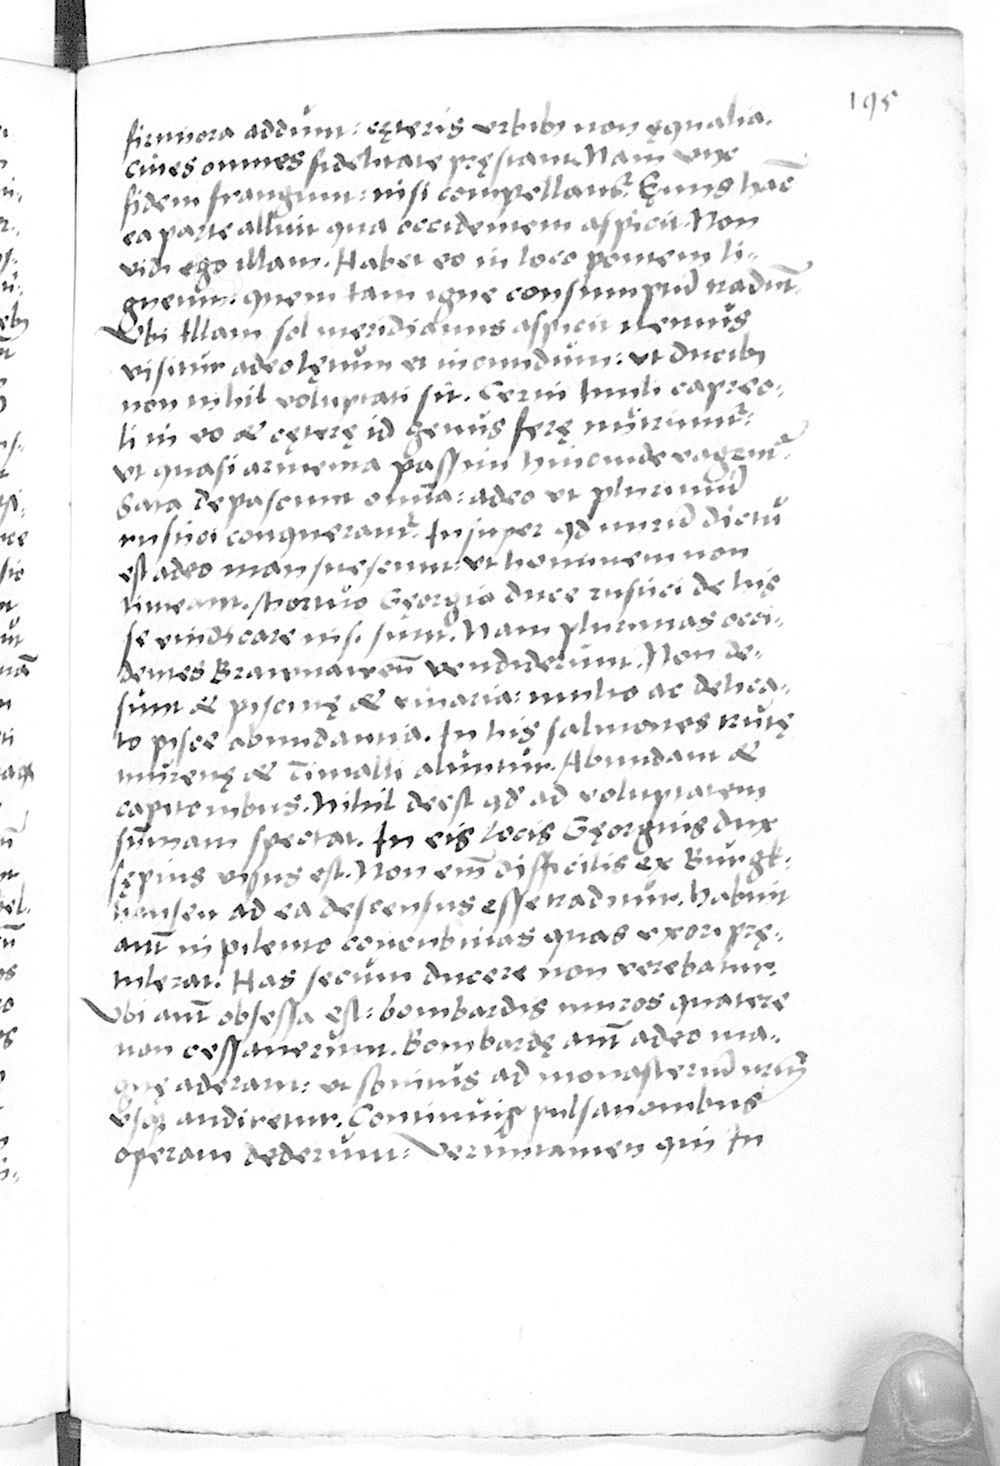 195
firmiora addunt: cęteris vrbibꝫ non ęqualia.
ciues omnes fidelitate pręstant. Nam vix
fidem frangunt: nisi compellant᷑. Ęnus hāc
ea parte alluit qua occidentem aspicit. Non
vidi ego illam. Habet eo in loco pontem li-
gneum: quem tam igne consumptū tradūt.
Vbi illam sol meridianus aspicit nemus
visitur adeo lętum et iucundum: vt ducibꝫ
non nihil voluptati sit. Cerui hinuli capreo-
li in eo & cęterę id genus ferę nutriunt᷑:
vt quasi armenta passim hinc inde vagent᷑.
Sata depascunt omnia: adeo vt plurimū
rustici conquerant᷑. Insuper qd mirū dictu
est adeo mansuescunt: vt hominem non
timeant. Mortuo Georgio duce rustici de his
se vindicare nisi sunt. Nam plurimas occi-
dentes vendiderunt. Non de-
sunt & piscinę & viuaria: multo ac delica-
to pisce abundantia. In his salmones trutę
murenę & timalli aluntur. Abundant &
capitonibus. Nihil deest qd ad voluptatem
sūmam spectat. In eis locis Gęorgius dux
sępius visus est. Non em̄ difficilis ex Burgk-
hausen ad ea descensus esse traditur. Habuit
aut̄ in pilento concubinas quas vxori prę-
tulerat. Has secum ducere non verebatur.
Vbi aut̄ obsessa est: bombardis muros quatere
non cessauerunt. Bombardę aut̄ adeo ma-
gnę aderant: vt sonitus ad monasteriū nrm̄
vsqꝫ audiretur. Continuis pulsationibus
operam dederunt: Veruntamen qui in